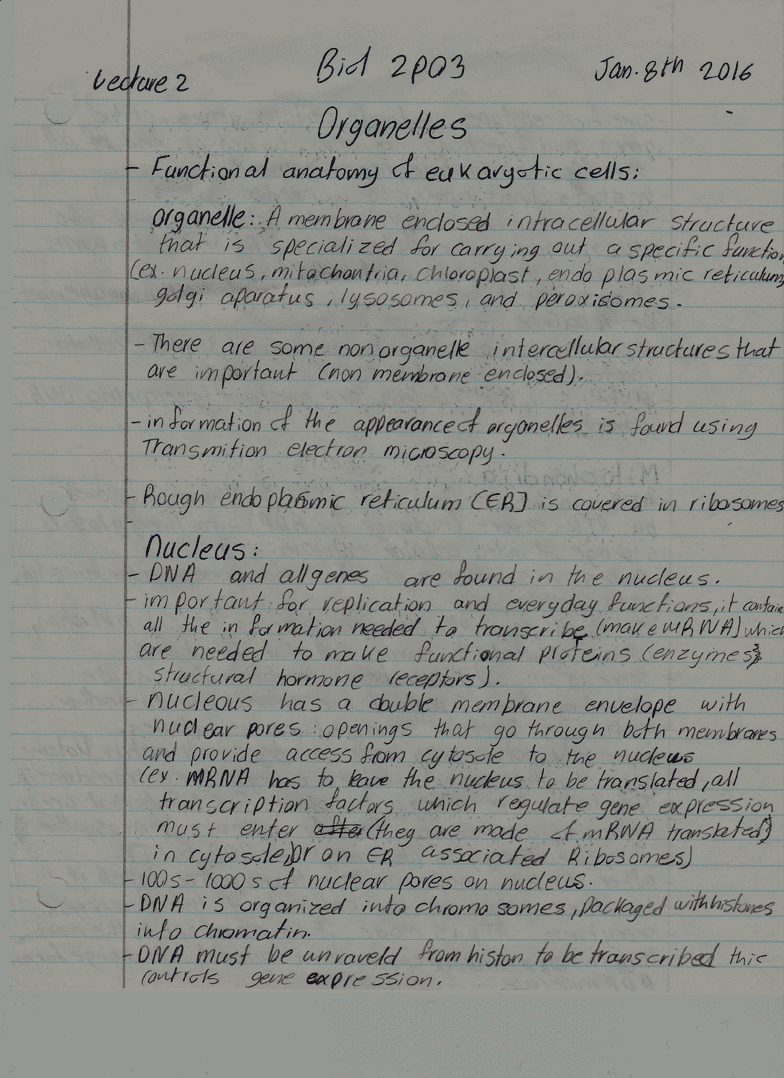 Lecture 2 Biol 2P03 Jan. 8th 2016
Organelles
- Functional anatomy of eukaryotic cells:
organelle: A membrane enclosed intracellular structure
that is specialized for carrying out a specific function
(ex. nucleus, mitochontria, chloroplast, endo plasmic reticulum,
golgi aparatus, lysosomes, and peroxisomes.
- There are some non organelle intercellular structures that
are important (non membrane enclosed).
- information of the appearance of organelles is found using
Transmition electron microscopy.
- Rough endoplasmic reticulum [ER] is covered in ribosomes
-
Nucleus:
- DNA and all genes are found in the nucleus.
- important for replication and everyday functions, it contains
all the information needed to transcribe (make mRNA) which
are needed to make functional proteins (enzymes,
structural hormone receptors).
- nucleous has a double membrane envelope with
nuclear pores: openings that go through both membranes
and provide access from cytosole to the nucleus
(ex. mRNA has to leave the nucleus to be translated, all
transcription factors which regulate gene expression
must enter after (they are made of mRNA translated)
in cytosole) or on ER associated Ribosomes)
- 100s - 1000s of nuclear pores on nucleus.
- DNA is organized into chromosomes, packaged with histones
into chromatin.
- DNA must be unraveld from histon to be transcribed this
controls gene expression.